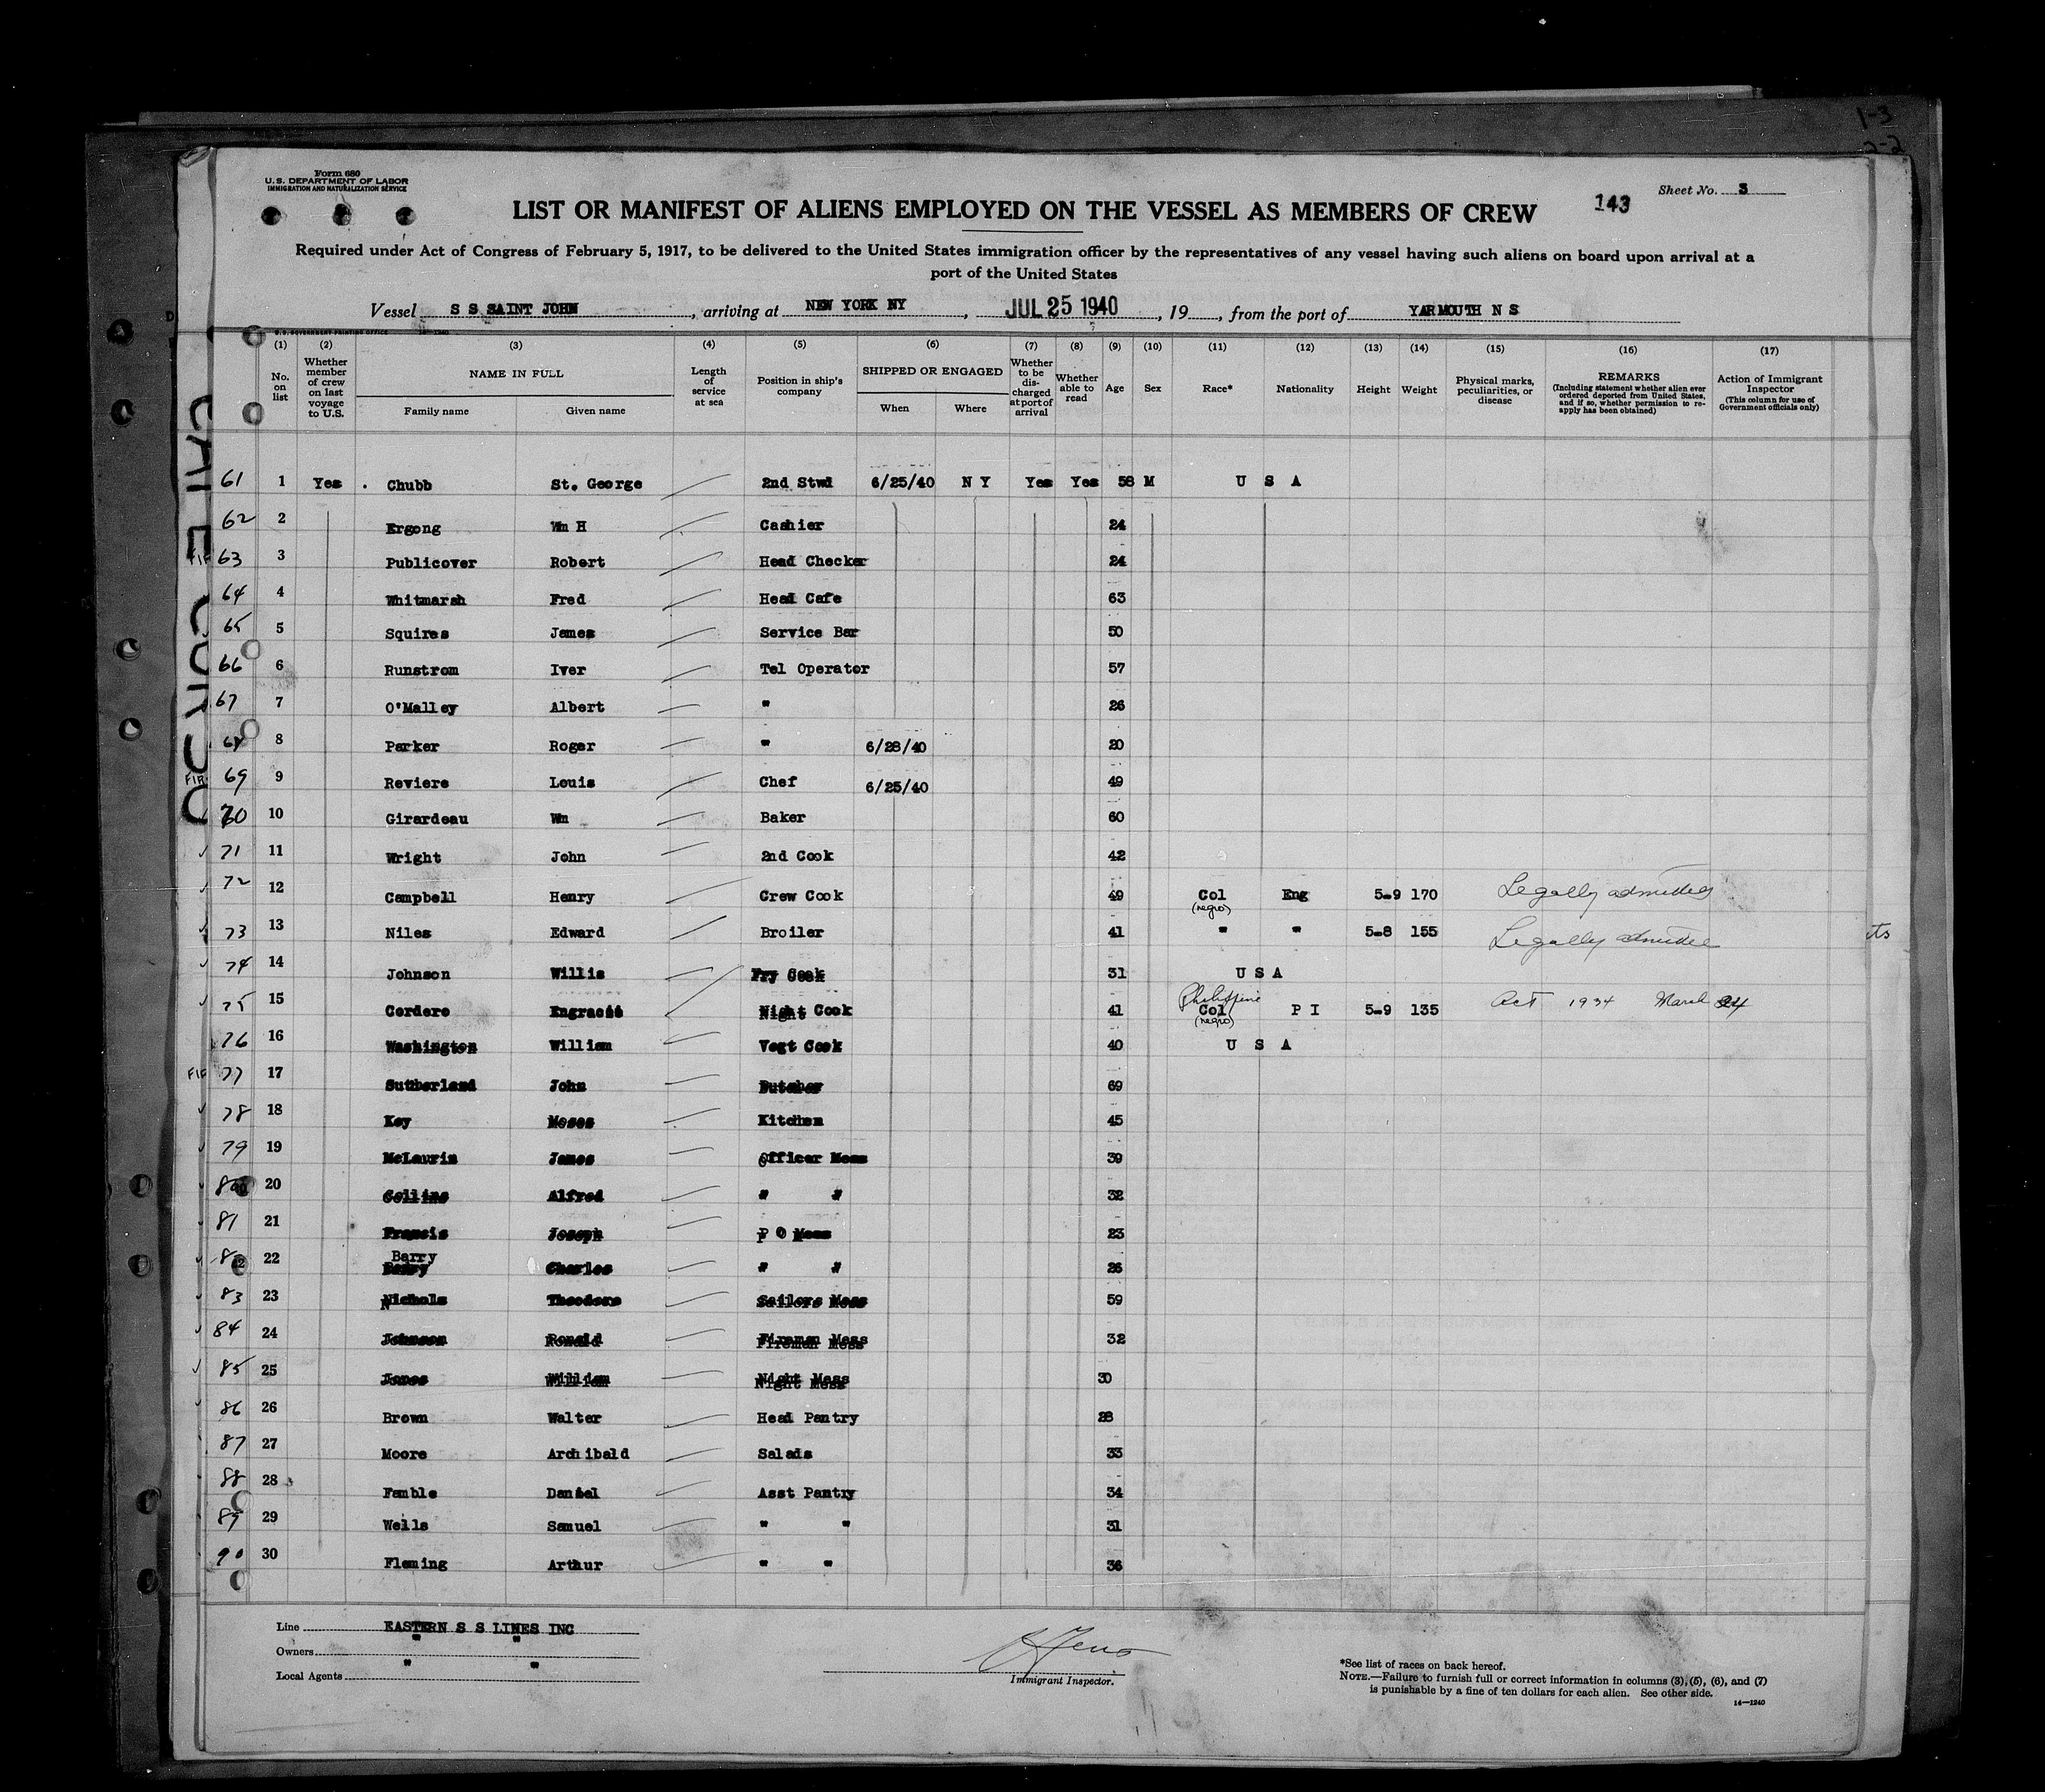 1-3
2-2
Form 680
U.S. DEPARTMENT OF LABOR
IMMIGRATION AND NATURALIZATION SERVICE
Sheet No. 3
143
LIST OR MANIFEST OF ALIENS EMPLOYED ON THE VESSEL AS MEMBERS OF CREW
Required under Act of Congress of February 5, 1917, to be delivered to the United States immigration officer by the representatives of any vessel having such aliens on board upon arrival at a
port of the United States
Vessel S S SAINT JOHN, arriving at NEW YORK NY, JUL 25 1940, 19, from the port of YARMOUTH N S
U.S. GOVERNMENT PRINTING OFFICE
(1) (2) (3) (4) (5) (6) (7) (8) (9) (10) (11) (12) (13) (14) (15) (16) (17)
No. on list
Whether member of crew on last voyage to U.S.
NAME IN FULL
Family name Given name
Length of service at sea
Position in ship's company
SHIPPED OR ENGAGED
When Where
Whether to be discharged at port of arrival
Whether able to read
Age
Sex
Race*
Nationality
Height
Weight
Physical marks, peculiarities, or disease
REMARKS
(Including statement whether alien ever ordered deported from United States, and if so, whether permission to reapply has been obtained)
Action of Immigrant Inspector
(This column for use of Government officials only)
61 1 Yes Chubb St. George 2nd Stwd 6/25/40 N Y Yes Yes 58 M U S A
62 2 Ergong Wm H Cashier 24
63 3 Publicover Robert Head Checker 24
64 4 Whitmarsh Fred Head Cafe 63
65 5 Squires James Service Bar 50
66 6 Runstrom Iver Tel Operator 57
67 7 O'Malley Albert " 26
68 8 Parker Roger " 6/28/40 20
FIR 69 9 Reviere Louis Chef 6/25/40 49
70 10 Girardeau Wm Baker 60
71 11 Wright John 2nd Cook 42
72 12 Campbell Henry Crew Cook 49 Col (negro) Eng 5-9 170 Legally admitted
73 13 Niles Edward Broiler 41 " " 5-8 155 Legally admitted
74 14 Johnson Willis Fry Cook 31 U S A
75 15 Cordero Night Cook 41 Philippine Col (negro) P I 5-9 135 Act 1934 March 24
76 16 Washington William Vegt Cook 40 U S A
77 17 Sutherland John Butcher 69
78 18 Key Moses Kitchen 45
79 19 McLaurin James Officer Mess 39
80 20 Collins Alfred " " 32
81 21 Francis Joseph P O Mess 23
82 22 Barry Charles " " 26
83 23 Nichols Theodore Sailors Mess 59
84 24 Johnson Ronald Firemen Mess 32
85 25 Jones William Night Mess 30
86 26 Brown Walter Head Pantry 28
87 27 Moore Archibald Salads 33
88 28 Famble Daniel Asst Pantry 34
89 29 Wells Samuel " " 31
90 30 Fleming Arthur " " 36
Line EASTERN S S LINES INC
Owners " "
Local Agents " "
Immigrant Inspector.
*See list of races on back hereof.
NOTE.—Failure to furnish full or correct information in columns (3), (5), (6), and (7)
is punishable by a fine of ten dollars for each alien. See other side.
14—1240